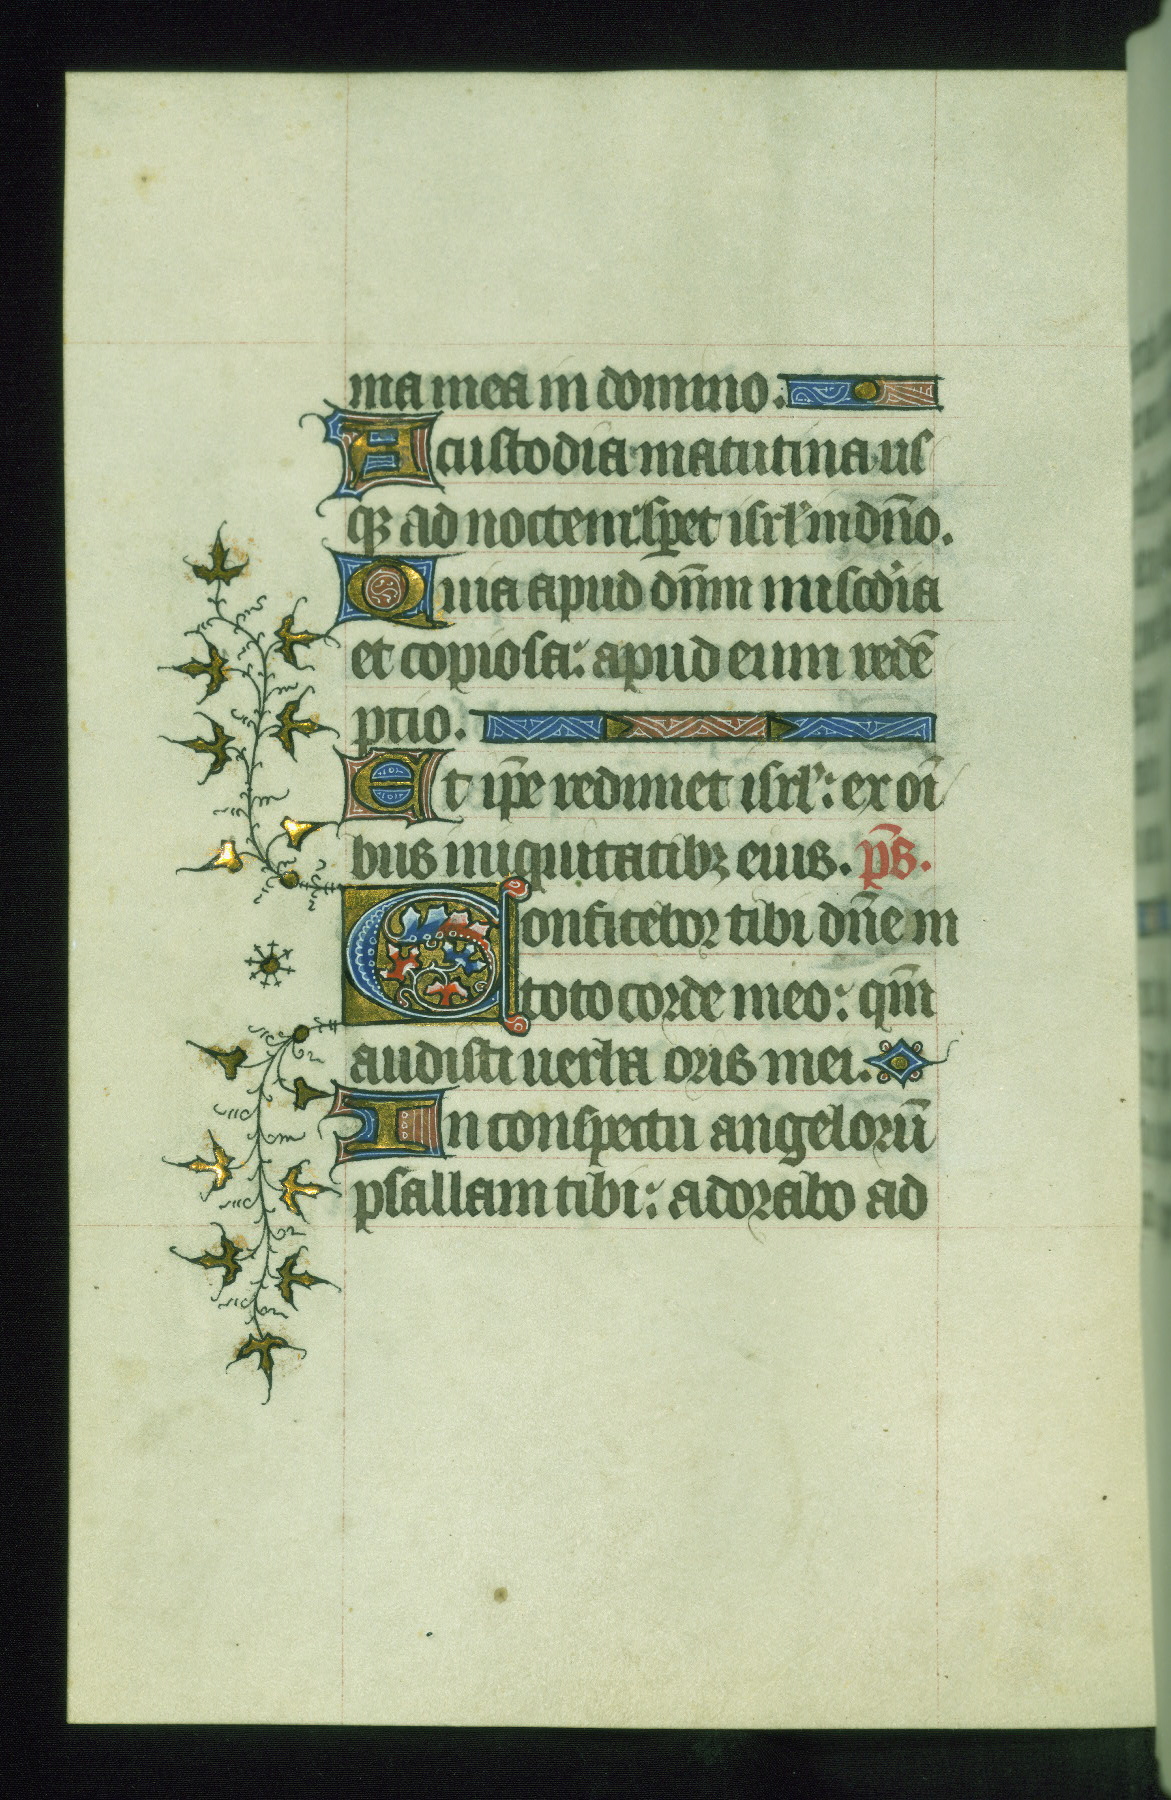 ma mea in domino.
A custodia matutina us
q3 ad noctem: sꝑet isrl' in dn̄o.
Quia apud dn̄m miscd'ia
et copiosa: apud eum redē
ptio.
Et ip̄e redimet isrl': ex oī
bus iniquitatib3 eius. p̄s.
Confitebor tibi dn̄e in
toto corde meo: qm̄
audisti uerba oris mei.
In conspectu angelorū
psallam tibi: adorabo ad